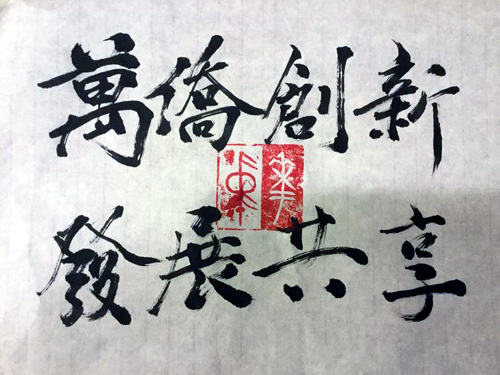 萬僑創新
發展共享